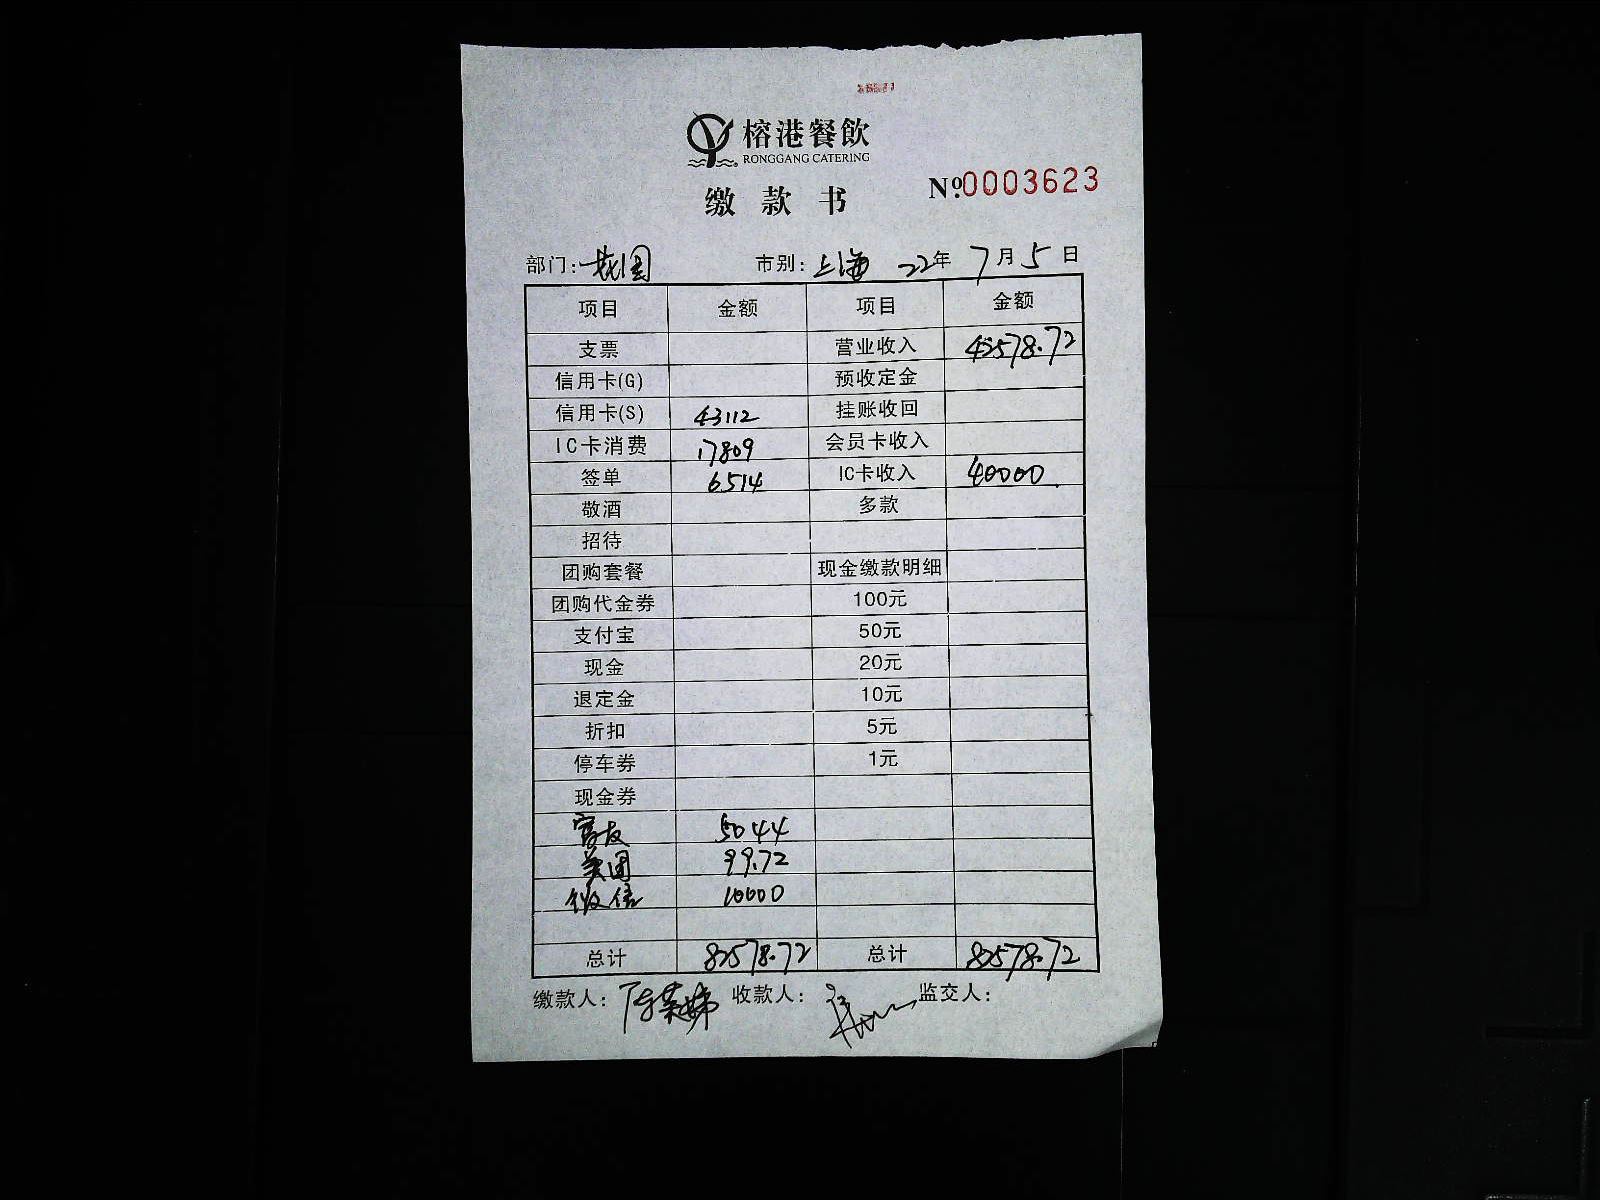 榕港餐飲
RONGGANG CATERING
缴款书
№0003623
部门:花园 市别:上海 22年7月5日
项目 金额 项目 金额
支票 营业收入 42578.72
信用卡(G) 预收定金
信用卡(S) 43112 挂账收回
IC卡消费 17809 会员卡收入
签单 6514 IC卡收入 40000
敬酒 多款
招待
团购套餐 现金缴款明细
团购代金券 100元
支付宝 50元
现金 20元
退定金 10元
折扣 5元
停车券 1元
现金券
5044
美团 99.72
微信 10000
总计 82578.72 总计 82578.72
缴款人: 收款人: 监交人: